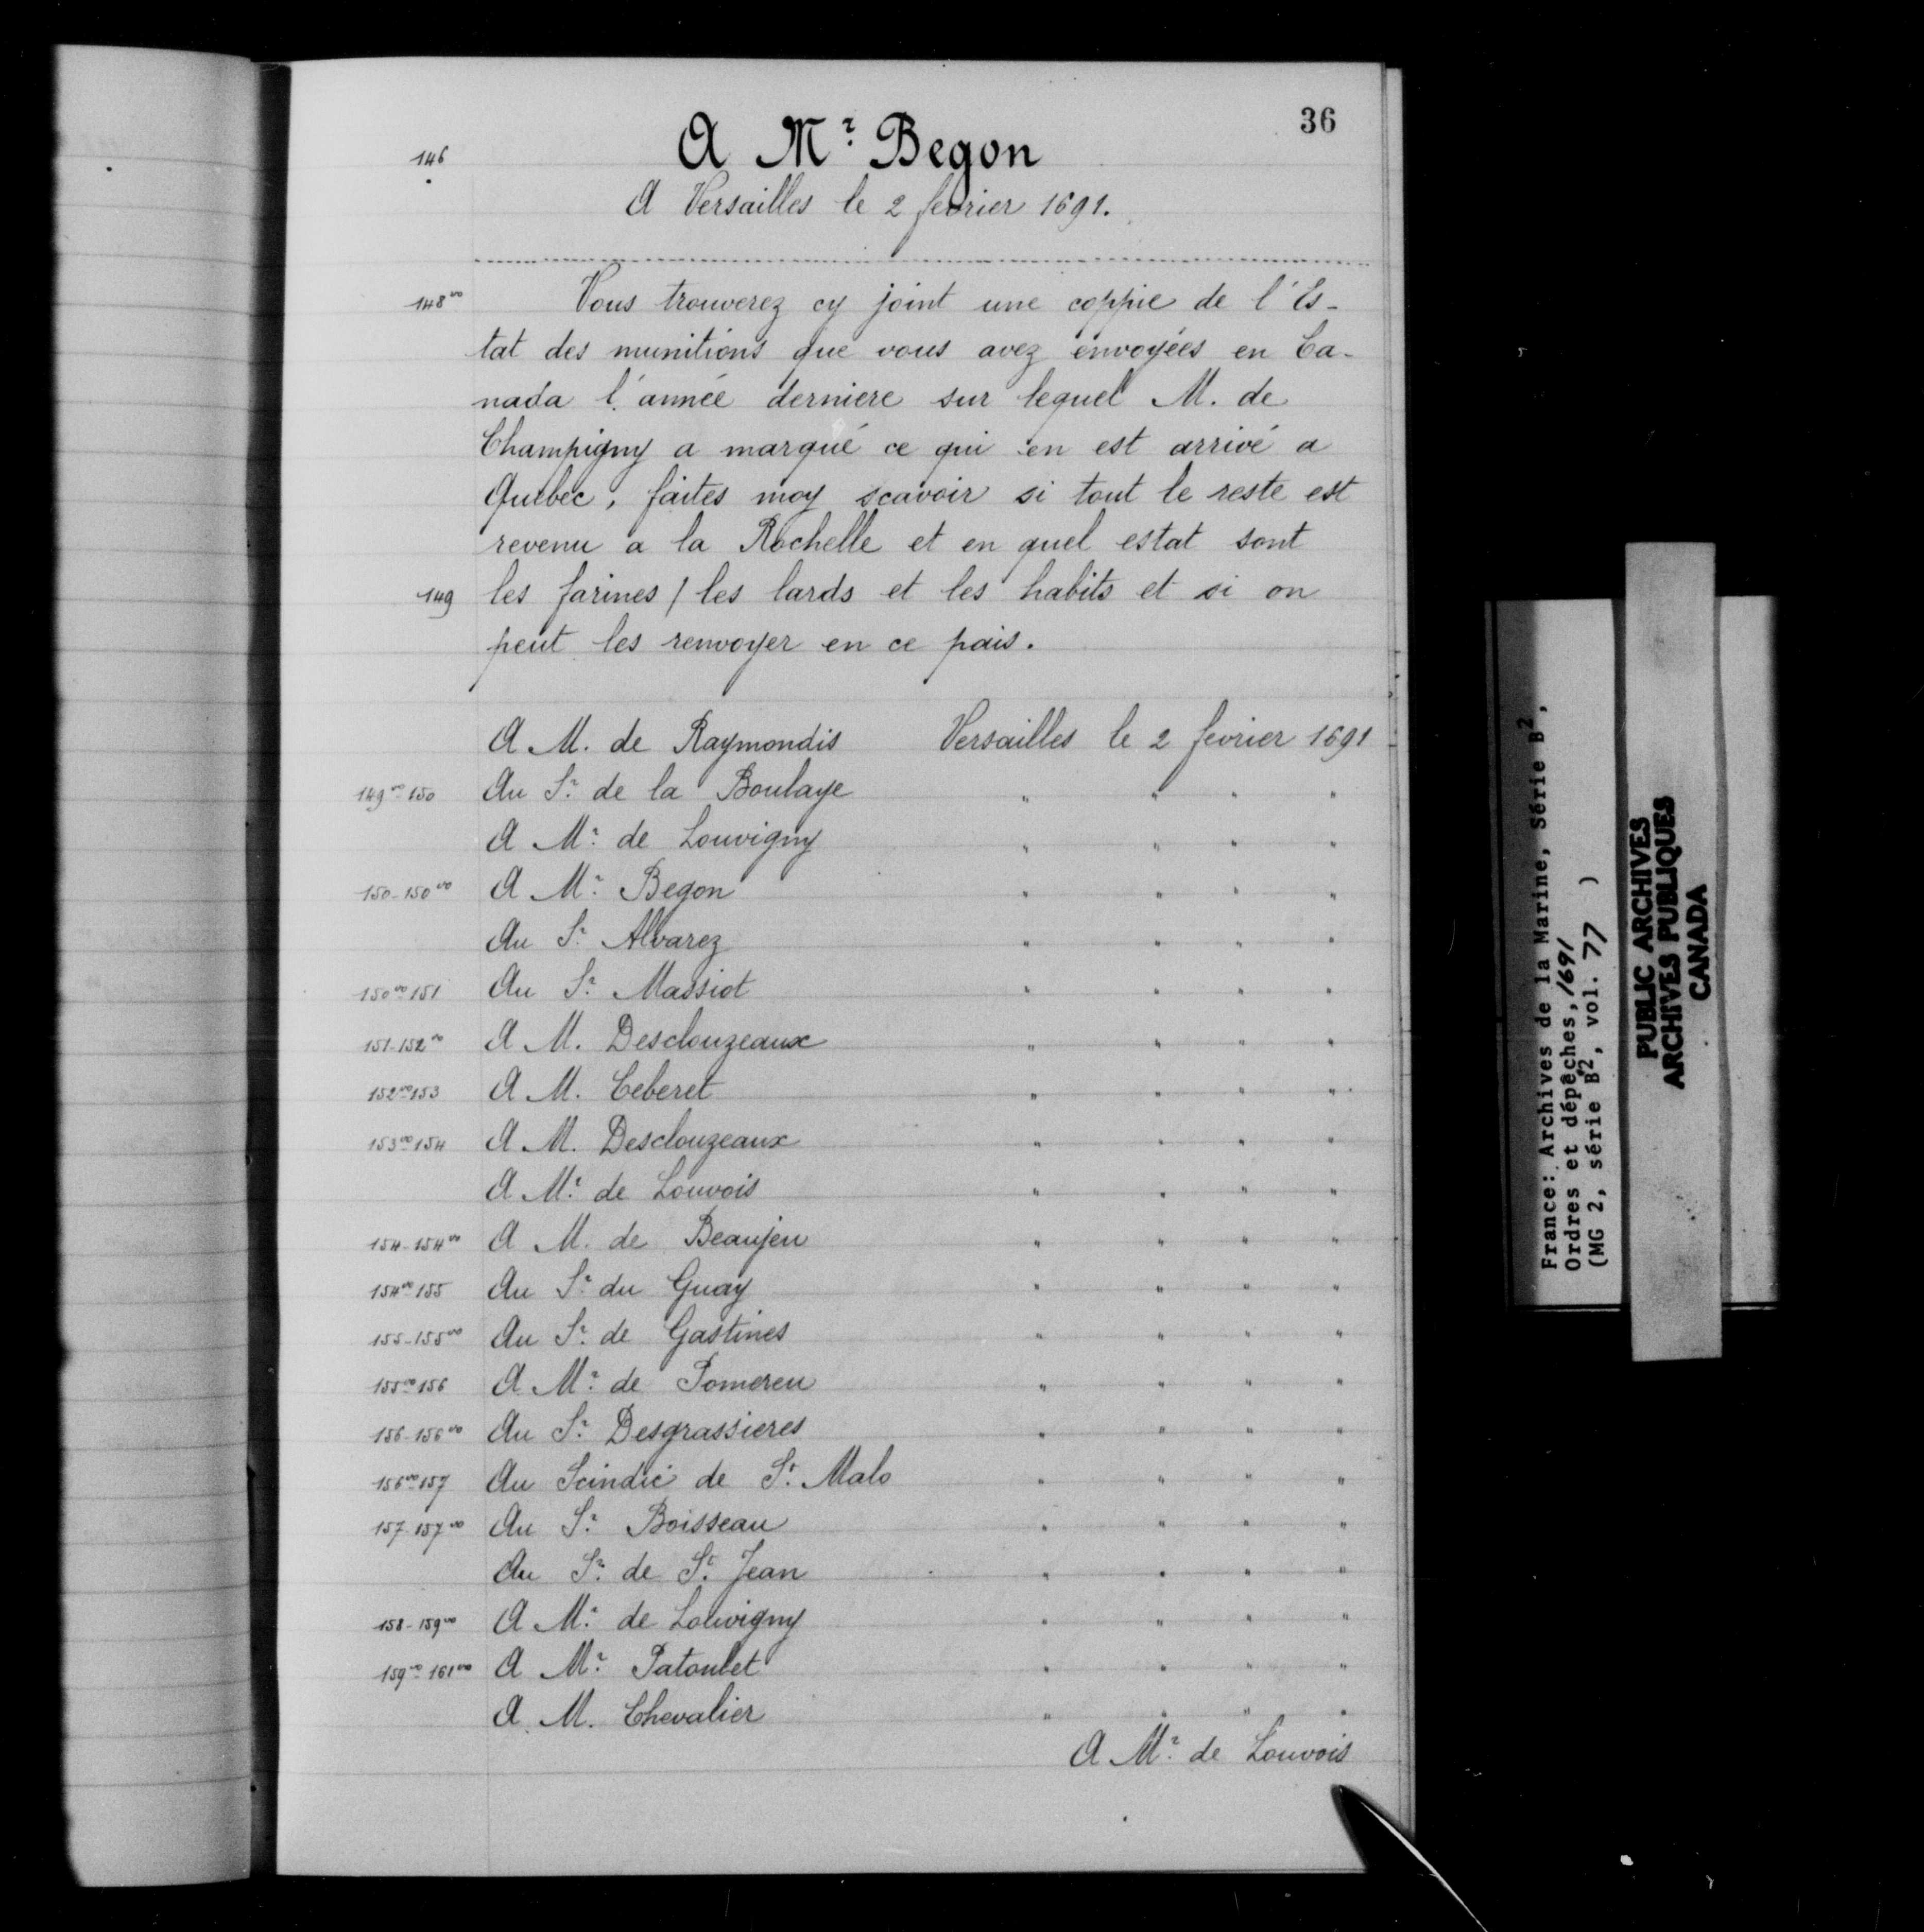 36
146 A Mr. Begon
A Versailles le 2 fevrier 1691.
148vo Vous trouverez cy joint une coppie de l'Es-
tat des munitions que vous avez envoyées en Ca-
nada l'année derniere sur lequel M. de
Champigny a marqué ce qui en est arrivé a
Quebec, faites moy scavoir si tout le reste est
revenu a la Rochelle et en quel estat sont
149 les farines / les lards et les habits et si on
peut les renvoyer en ce pais.
A M. de Raymondis Versailles le 2 fevrier 1691
149vo-150 Au Sr. de la Boulaye " " " "
A Mr. de Louvigny " " " "
150-150vo A Mr. Begon " " " "
Au Sr. Alvarez " " " "
150vo-151 Au Sr. Massiot " " " "
151-152vo A M. Desclouzeaux " " " "
152vo-153 A M. Ceberet " " " "
153vo-154 A M. Desclouzeaux " " " "
A Mr. de Louvois " " " "
154-154vo A M. de Beaujeu " " " "
154vo-155 Au Sr. du Guay " " " "
155-155vo Au Sr. de Gastines " " " "
155vo-156 A Mr. de Pomereu " " " "
156-156vo Au Sr. Desgrassieres " " " "
156vo-157 Au Scindic de St. Malo " " " "
157-157vo Au Sr. Boisseau " " " "
Au Sr. de St. Jean " " " "
158-159vo A Mr. de Louvigny " " " "
159vo-161vo A Mr. Patoulet " " " "
A M. Chevalier " " " "
A Mr. de Louvois
France: Archives de la Marine, Série B2,
Ordres et dépêches, 1691
(MG 2, série B2, vol. 77 )
PUBLIC ARCHIVES
ARCHIVES PUBLIQUES
CANADA